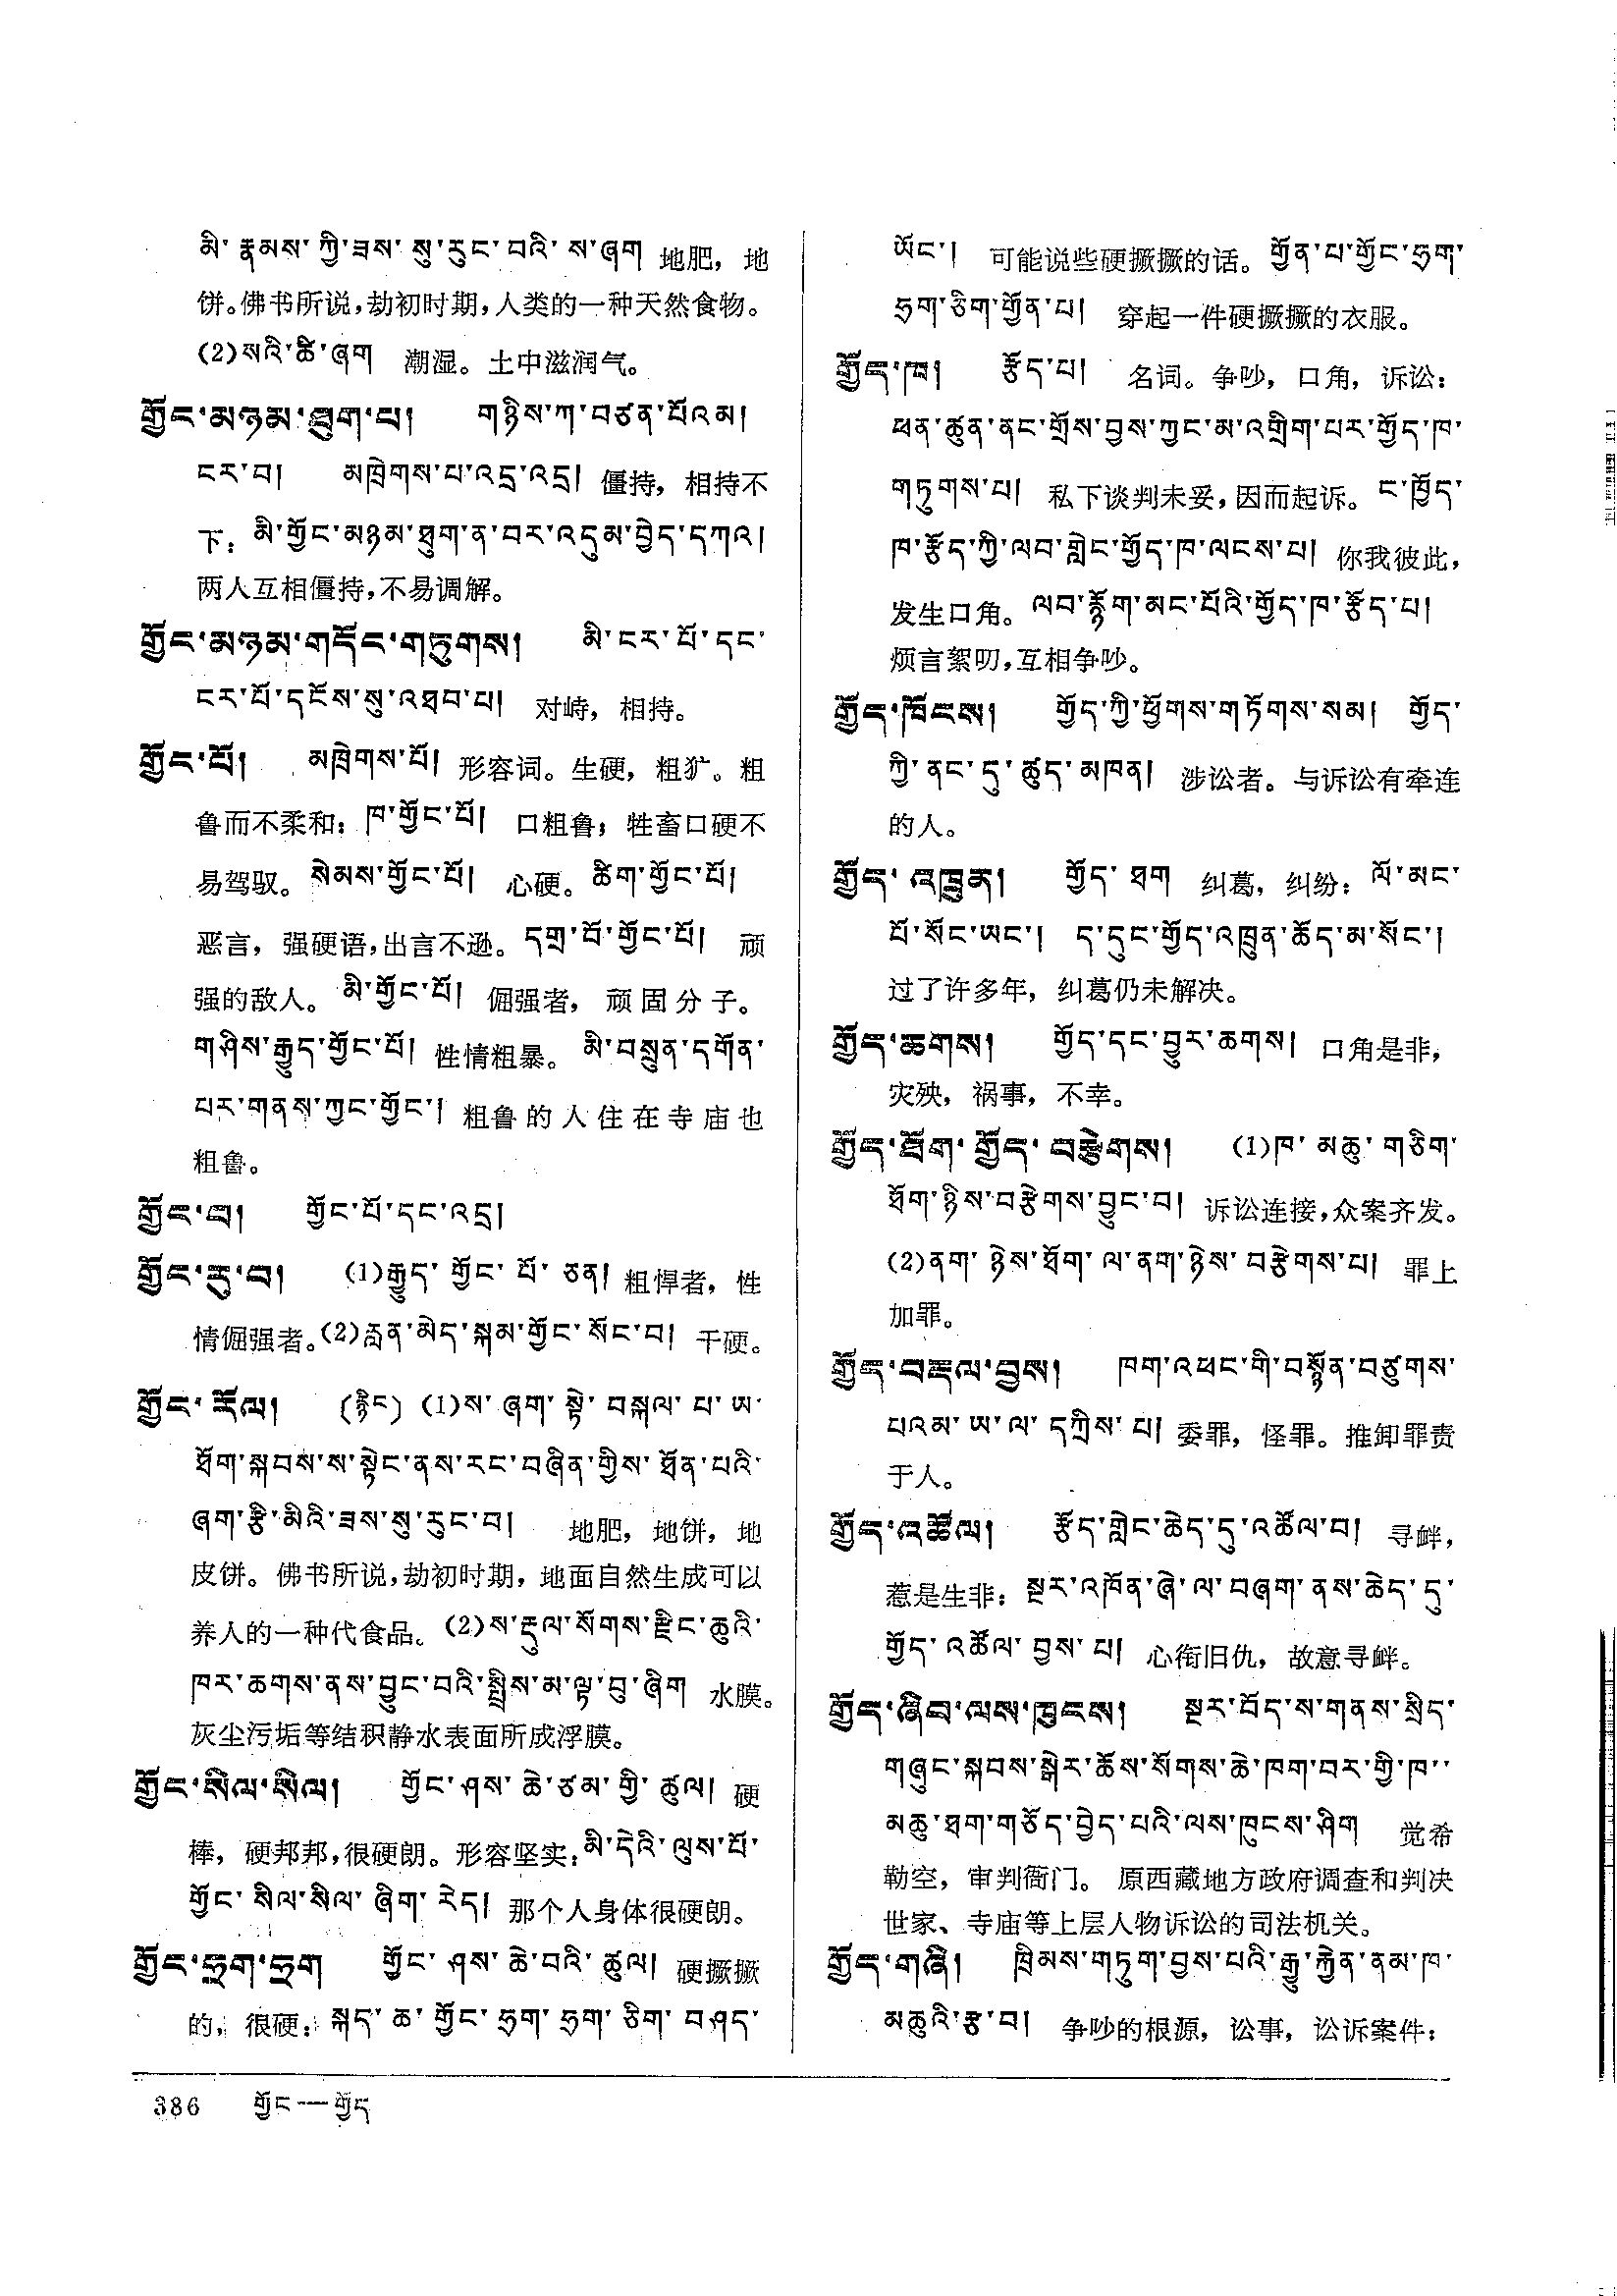 མི་རྣམས་ཀྱི་ཟས་སུ་རུང་བའི་ས་ཞག 地肥，地
饼。佛书所说，劫初时期，人类的一种天然食物。
(2)སའི་ཚི་ཞག 潮湿。土中滋润气。
གྱོང་མཉམ་ཐུག་པ། གཉིས་ཀ་བཙན་པོའམ།
ངར་བ། མཁྲེགས་པ་འདྲ་འདྲ། 僵持，相持不
下：མི་གྱོང་མཉམ་ཐུག་ན་བར་འདུམ་བྱེད་དཀའ།
两人互相僵持，不易调解。
གྱོང་མཉམ་གདོང་གཏུགས། མི་ངར་པོ་དང་
ངར་པོ་དངོས་སུ་འཐབ་པ། 对峙，相持。
གྱོང་པོ། མཁྲེགས་པོ། 形容词。生硬，粗犷。粗
鲁而不柔和：ཁ་གྱོང་པོ། 口粗鲁；牲畜口硬不
易驾驭。སེམས་གྱོང་པོ། 心硬。ཚིག་གྱོང་པོ།
恶言，强硬语，出言不逊。དགྲ་བོ་གྱོང་པོ། 顽
强的敌人。མི་གྱོང་པོ། 倔强者，顽固分子。
གཤིས་རྒྱུད་གྱོང་པོ། 性情粗暴。མི་བསྲུན་དགོན་
པར་གནས་ཀྱང་གྱོང་། 粗鲁的人住在寺庙也
粗鲁。
གྱོང་བ། གྱོང་པོ་དང་འདྲ།
གྱོང་རུ་བ། (1)རྒྱུད་གྱོང་པོ་ཅན། 粗悍者，性
情倔强者。(2)རླན་མེད་སྐམ་གྱོང་སོང་བ། 干硬。
གྱོང་རོལ། (རྙིང) (1)ས་ཞག་སྟེ་བསྐལ་པ་ཨ་
ཐོག་སྐབས་ས་སྟེང་ནས་རང་བཞིན་གྱིས་ཐོན་པའི་
ཞག་རྩི་མིའི་ཟས་སུ་རུང་བ། 地肥，地饼，地
皮饼。佛书所说，劫初时期，地面自然生成可以
养人的一种代食品。(2)ས་རྡུལ་སོགས་རྫིང་ཆུའི་
ཁར་ཆགས་ནས་བྱུང་བའི་སྤྲིས་མ་ལྟ་བུ་ཞིག 水膜。
灰尘污垢等结积静水表面所成浮膜。
གྱོང་སིལ་སིལ། གྱོང་ཤས་ཆེ་ཙམ་གྱི་ཚུལ། 硬
棒，硬邦邦，很硬朗。形容坚实：མི་དེའི་ལུས་པོ་
གྱོང་སིལ་སིལ་ཞིག་རེད། 那个人身体很硬朗。
གྱོང་ཧྲག་ཧྲག གྱོང་ཤས་ཆེ་བའི་ཚུལ། 硬撅撅
的，很硬：སྐད་ཆ་གྱོང་ཧྲག་ཧྲག་ཅིག་བཤད་
ཡོང་། 可能说些硬撅撅的话。གྱོན་པ་གྱོང་ཧྲག་
ཧྲག་ཅིག་གྱོན་པ། 穿起一件硬撅撅的衣服。
གྱོད་ཁ། རྩོད་པ། 名词。争吵，口角，诉讼：
ཕན་ཚུན་ནང་གྲོས་བྱས་ཀྱང་མ་འགྲིག་པར་གྱོད་ཁ་
གཏུགས་པ། 私下谈判未妥，因而起诉。ང་ཁྱོད་
ཁ་རྩོད་ཀྱི་ལབ་གླེང་གྱོད་ཁ་ལངས་པ། 你我彼此，
发生口角。ལབ་རྙོག་མང་པོའི་གྱོད་ཁ་རྩོད་པ།
烦言絮叨，互相争吵。
གྱོད་ཁོངས། གྱོད་ཀྱི་ཕྱོགས་གཏོགས་སམ། གྱོད་
ཀྱི་ནང་དུ་ཚུད་མཁན། 涉讼者。与诉讼有牵连
的人。
གྱོད་འཁྲུན། གྱོད་ཐག 纠葛，纠纷：ལོ་མང་
པོ་སོང་ཡང་། ད་དུང་གྱོད་འཁྲུན་ཆོད་མ་སོང་།
过了许多年，纠葛仍未解决。
གྱོད་ཆགས། གྱོད་དང་བྱུར་ཆགས། 口角是非，
灾殃，祸事，不幸。
གྱོད་ཐོག་གྱོད་བརྩེགས། (1)ཁ་མཆུ་གཅིག་
ཐོག་ཉིས་བརྩེགས་བྱུང་བ། 诉讼连接，众案齐发。
(2)ནག་ཉེས་ཐོག་ལ་ནག་ཉེས་བརྩེགས་པ། 罪上
加罪。
གྱོད་བརྡལ་བྱས། ཁག་འཕང་གི་བསྙོན་བཙུགས་
པའམ་ཨ་ལ་དཀྲིས་པ། 委罪，怪罪。推卸罪责
于人。
གྱོད་འཚོལ། རྩོད་གླེང་ཆེད་དུ་འཚོལ་བ། 寻衅，
惹是生非：སྔར་འཁོན་ཞེ་ལ་བཞག་ནས་ཆེད་དུ་
གྱོད་འཚོལ་བྱས་པ། 心衔旧仇，故意寻衅。
གྱོད་ཞིབ་ལས་ཁུངས། སྔར་བོད་ས་གནས་སྲིད་
གཞུང་སྐབས་སྒེར་ཆོས་སོགས་ཆེ་ཁག་བར་གྱི་ཁ་་
མཆུ་ཐག་གཅོད་བྱེད་པའི་ལས་ཁུངས་ཤིག 觉希
勒空，审判衙门。原西藏地方政府调查和判决
世家、寺庙等上层人物诉讼的司法机关。
གྱོད་གཞི། ཁྲིམས་གཏུག་བྱས་པའི་རྒྱུ་རྐྱེན་ནམ་ཁ་
མཆུའི་རྩ་བ། 争吵的根源，讼事，讼诉案件：
386 གྱོང—གྱོད